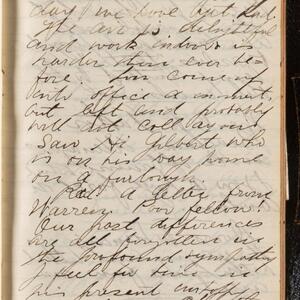 day we love but God.
The air is delightful
and work indoors is
harder than ever be-
fore. Tom came
into office a minute,
but left and probably
will not call again.
Saw Hi Gilbert who
is on his way home
on a furlough.
Rec'd a letter from
Warren. Poor fellow!
Our past differences
are all forgotten in
the profound sympathy
I feel for him in
his present